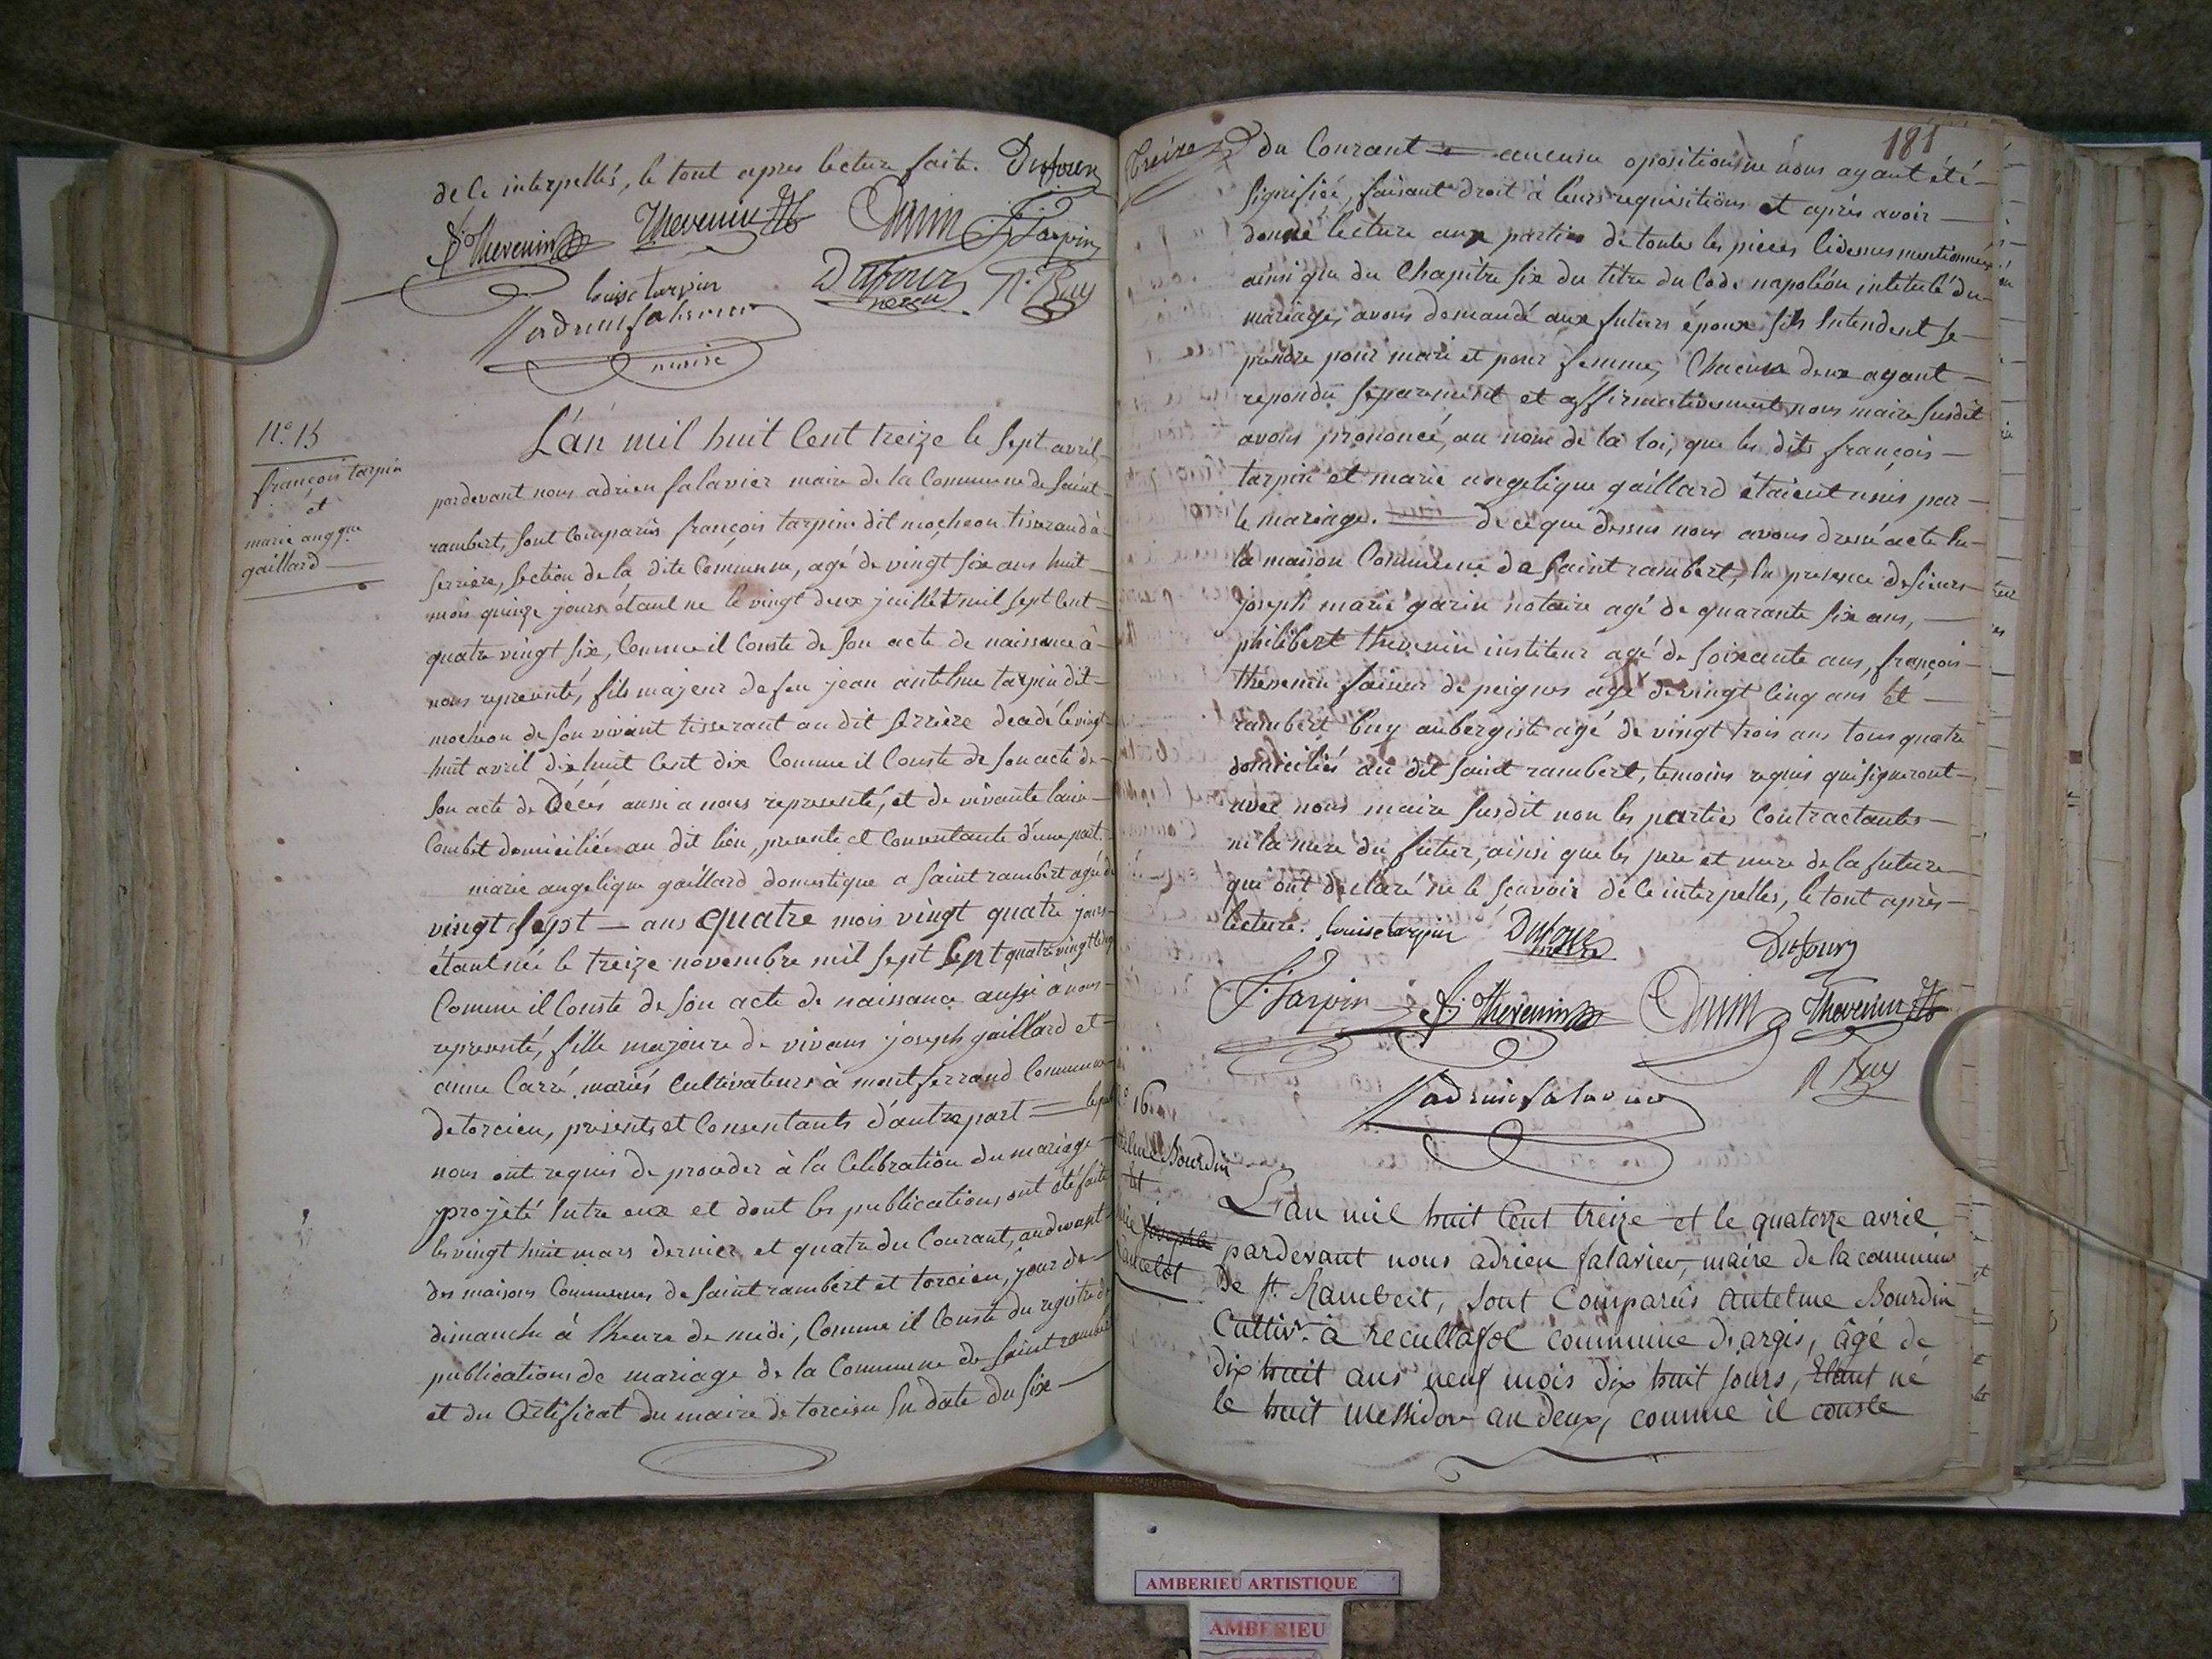 de ce interpellés, le tout apres lecture faite. Dufour
f. Thevenin Thevenin Garin f. Tarpin
louise tarpin Dufour neveu R. Buy
adrien salavier
maire
N.o 15
françois tarpin
et
marie angque
gaillard
L'an mil huit Cent treize le sept avril
pardevant nous adrien salavier maire de la Commune de saint
rambert, sont Comparus françois tarpin dit mocheon tisserand à
serriere, section de la dite Commune, agé de vingt six ans huit
mois quinze jours étant né le vingt deux juillet mil sept Cent
quatre vingt six, Comme il Conste de son acte de naissance à
nous representé, fils majeur de feu jean antelme tarpin dit
mocheon de son vivant tisserant au dit serriere decedé le vingt
huit avril dix huit Cent dix Comme il Conste de son acte de
son acte de Décés aussi a nous representé, et de vivante
Combet domiciliée au dit lieu, presente et Consentante d'une part.
marie angelique gaillard domestique a saint rambert agée de
vingt sept — ans quatre mois vingt quatre jours
étant née le treize novembre mil sept Cent quatre vingt Cinq
Comme il Conste de son acte de naissance aussi à nous
representé, fille majeure de vivans joseph gaillard et
anne Carré mariés Cultivateurs à montferrand Commune
de torcieu, presents et Consentants d'autre part =
nous ont requis de proceder à la Celébration du mariage
projété Entre eux et dont les publications ont été faites
les vingt huit mars dernier et quatre du Courant, audevant
des maisons Communes de saint rambert et torcieu, jour de
dimanche à l'heure de midi, Comme il Conste du registre de
publications de mariage de la Commune de saint rambert
et du Certificat du maire de torcieu En date du six
181
treize
du Courant = aucune oposition ne nous ayant été
signifiée, faisant droit à leurs requisitions et après avoir
donné lecture aux parties de toutes les pieces Cidessus mentionnées
ainsi que du Chapitre six du titre du Code napoléon intitulé du
mariage, avons demandé aux futurs époux s'ils Entendent se
prendre pour mari et pour femme, Chacun deux ayant
repondu séparement et affirmativement, nous maire susdit
avons prononcé, au nom de la loi, que les dits françois
tarpin et marie angelique gaillard étaient unis par
le mariage. de ce que dessus nous avons dressé acte En
la maison Commune de saint rambert, En presence de sieurs
joseph marie garin notaire agé de quarante six ans,
philibert thevenin institeur agé de soixante ans, françois
thevenin faiseur de peignes agé de vingt Cinq ans Et
rambert buy aubergiste agé de vingt trois ans tous quatre
domiciliés au dit saint rambert, temoins requis qui signeront
avec nous maire susdit non les parties Contractantes
ni la mere du futur, ainsi que les pere et mere de la future
qui ont declaré ne le sçavoir de Ce interpelles, le tout après
lecture. louise tarpin Dufour neveu Dufour
f. Tarpin f. Thevenin Garin Thevenin
R Buy
adrien salavier
16
Bourdin
et
josephe
Lancelot
L'an mil huit Cent treize et le quatorze avril
pardevant nous adrien salavier, maire de la commune
de St. Rambert, sont Comparus Antelme Bourdin
Cultivr. à recullafol commune d'argis, âgé de
dix huit ans neuf mois dix huit jours, Etant né
le huit Messidor an deux, comme il conste
AMBERIEU ARTISTIQUE
AMBERIEU